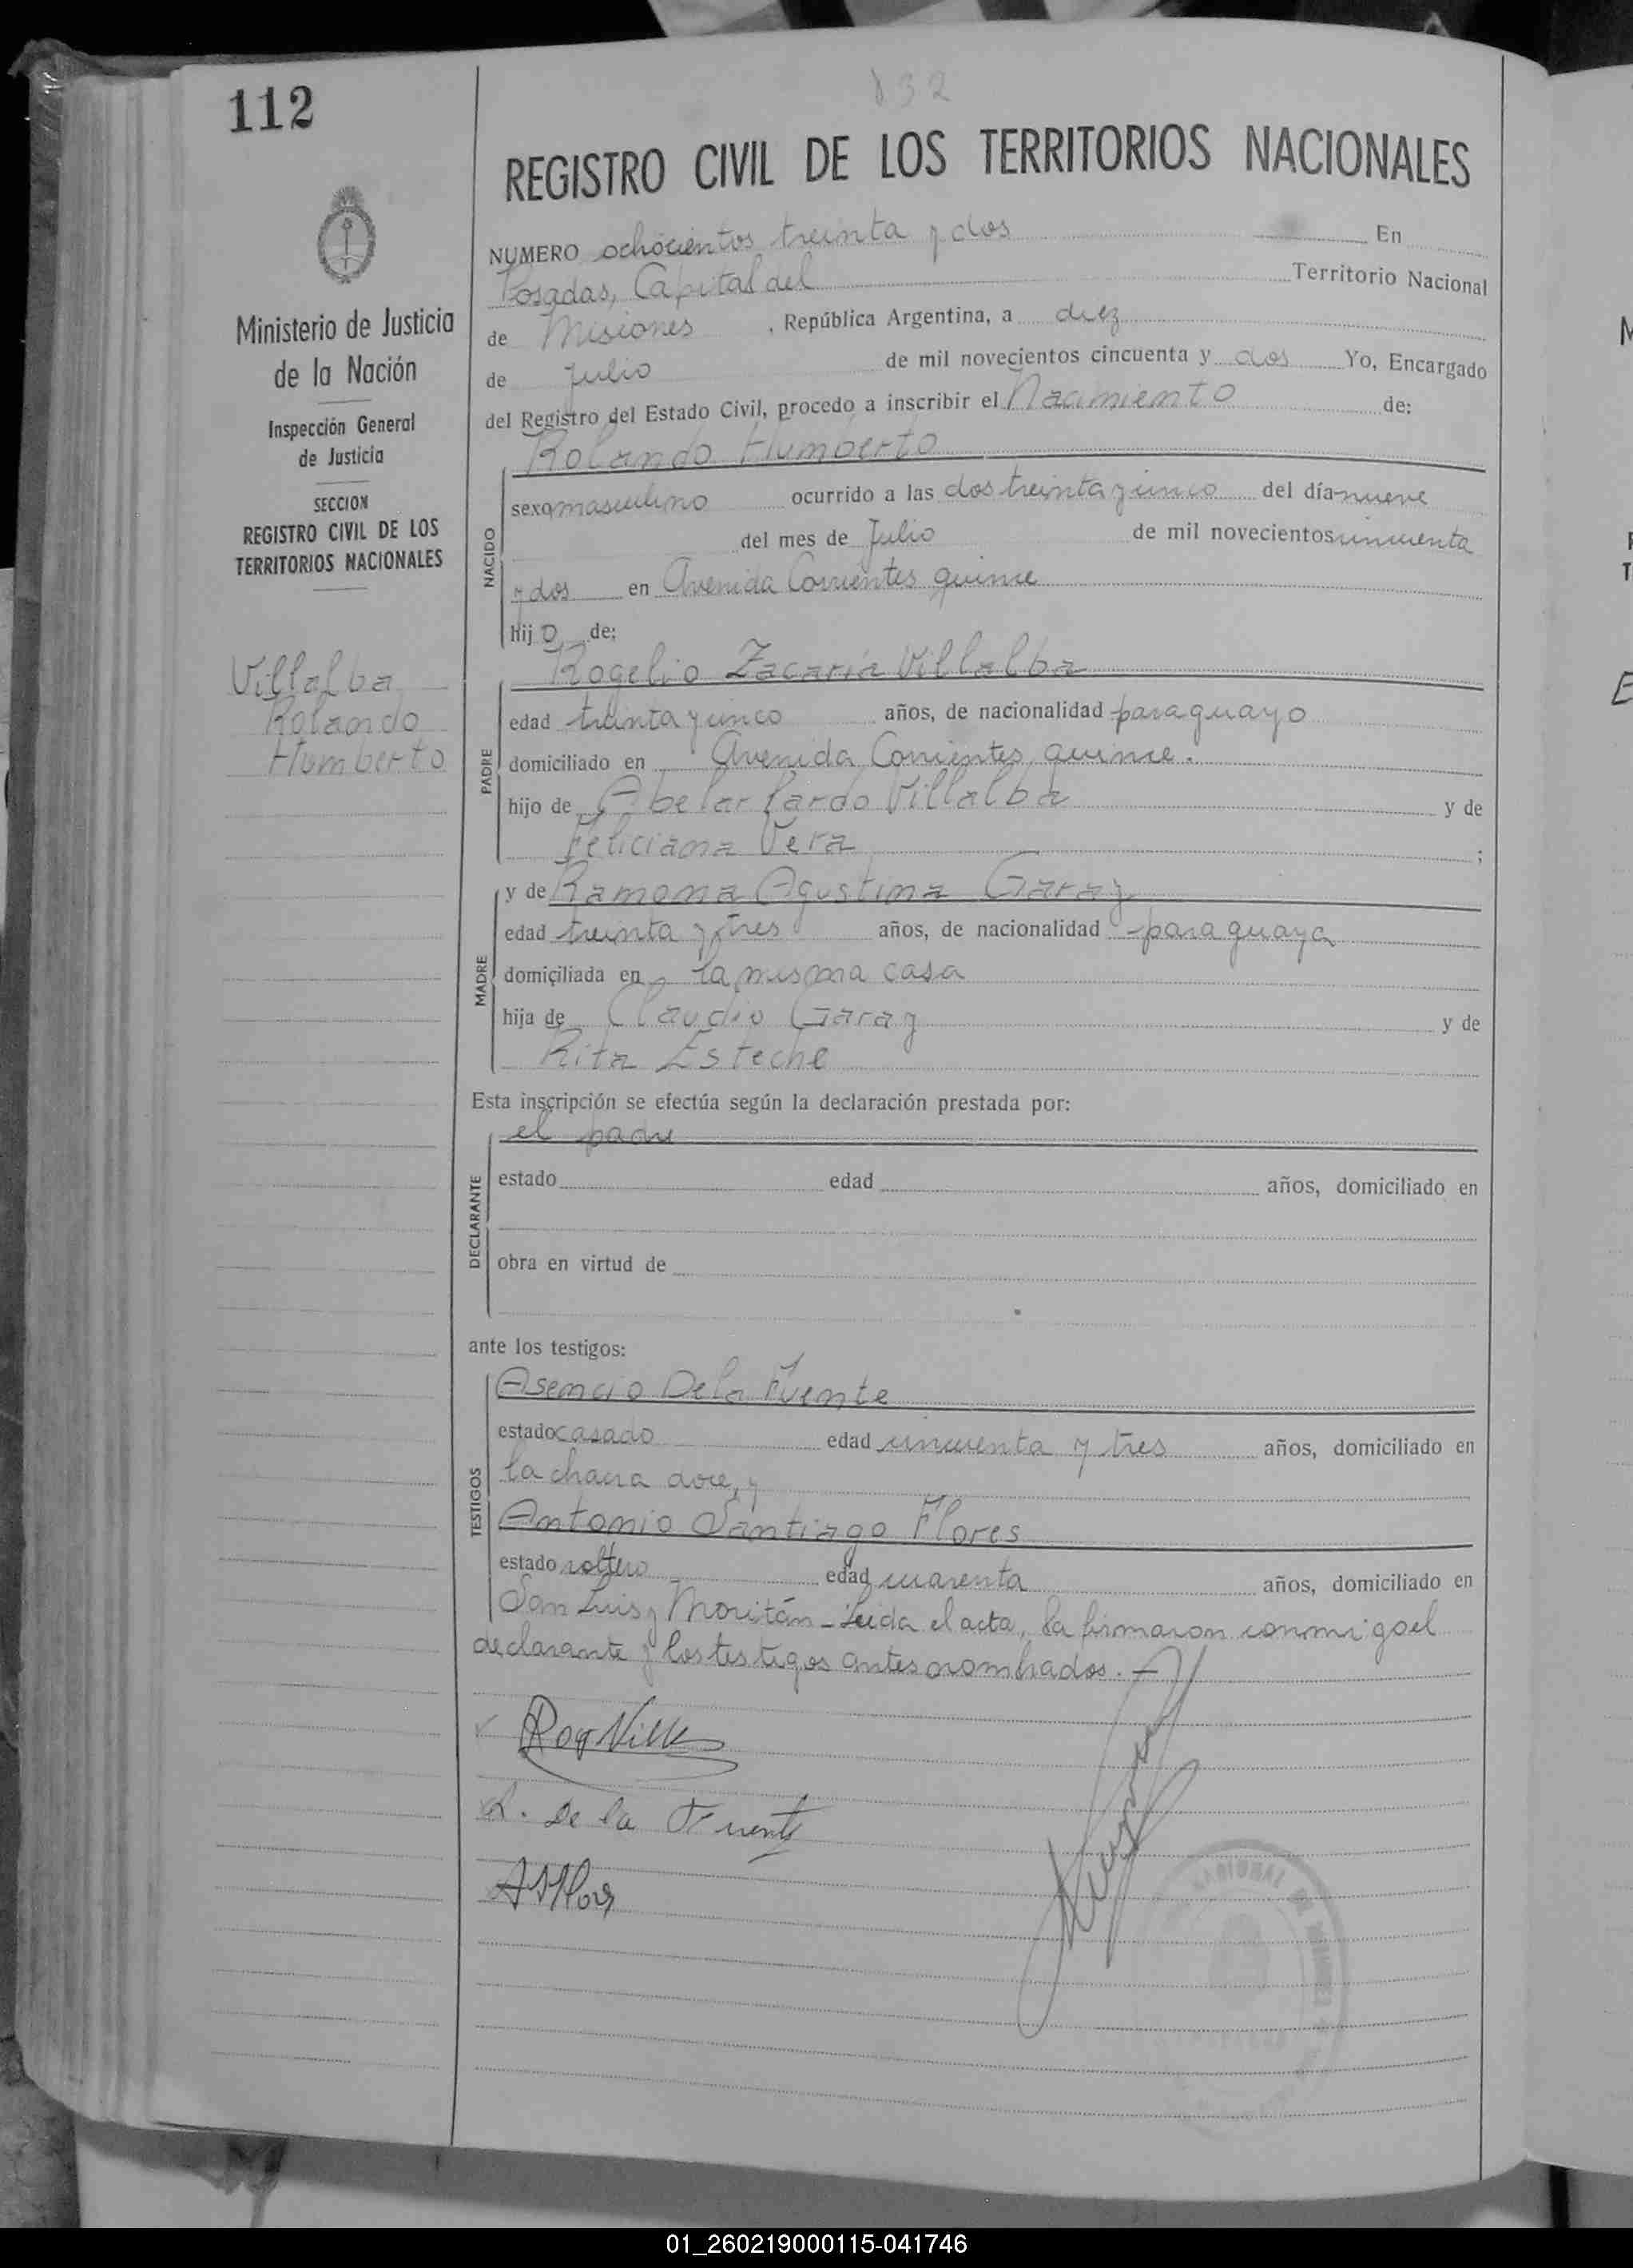 112
832
REGISTRO CIVIL DE LOS TERRITORIOS NACIONALES
Ministerio de Justicia
de la Nación
Inspección General
de Justicia
SECCION
REGISTRO CIVIL DE LOS
TERRITORIOS NACIONALES
Villalba
Rolando
Humberto
NUMERO ochocientos treinta y dos En
Posadas, Capital del Territorio Nacional
de Misiones , República Argentina, a diez
de Julio de mil novecientos cincuenta y dos Yo, Encargado
del Registro del Estado Civil, procedo a inscribir el Nacimiento de:
Rolando Humberto
NACIDO
sexo masculino ocurrido a las dos treinta y cinco del día nueve
del mes de Julio de mil novecientos cincuenta
y dos en Avenida Corrientes quince
hij o de:
Rogelio Zacaría Villalba
PADRE
edad treinta y cinco años, de nacionalidad paraguayo
domiciliado en Avenida Corrientes quince.
hijo de Abelarfardo Villalba y de
Feliciana Vera ;
y de Ramona Agustina Garay
MADRE
edad treinta y tres años, de nacionalidad paraguaya
domiciliada en la misma casa
hija de Claudio Garay y de
Rita Esteche
Esta inscripción se efectúa según la declaración prestada por:
el padre
DECLARANTE
estado edad años, domiciliado en
obra en virtud de
ante los testigos:
Asencio De la Fuente
TESTIGOS
estado casado edad cincuenta y tres años, domiciliado en
la chacra doce, y
Antonio Santiago Flores
estado soltero edad cuarenta años, domiciliado en
San Luis y Moritán - Leida el acta, la firmaron conmigo el
declarante y los testigos antes nombrados. -
Rog Villa
A. De la Fuente
ASFlores
NACIONAL DE MISIONES
01_260219000115-041746